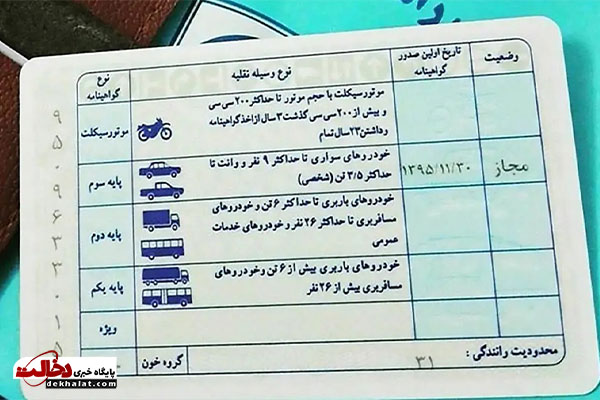 نوع گواهینامه
نوع وسیله نقلیه
تاریخ اولین صدور گواهینامه
وضعیت
موتورسیکلت
موتورسیکلت با حجم موتور تا حداکثر ۲۰۰ سی سی
و بیش از ۲۰۰ سی سی گذشت ۳ سال از اخذ گواهینامه
و داشتن ۲۳ سال تمام
پایه سوم
خودروهای سواری تا حداکثر ۹ نفر و وانت تا
حداکثر ۳/۵ تن (شخصی)
۱۳۹۵/۱۱/۳۰
مجاز
پایه دوم
خودروهای باربری تا حداکثر ۶ تن و خودروهای
مسافربری تا حداکثر ۲۶ نفر و خودروهای خدمات
عمومی
پایه یکم
خودروهای باربری بیش از ۶ تن و خودروهای
مسافربری بیش از ۲۶ نفر
ویژه
گروه خون
محدودیت رانندگی : ۳۱
۹
۵
۰
۹
۶
۳
۳
۰
۱
۵
پایگاه خبری دخالت
dekhalat.com